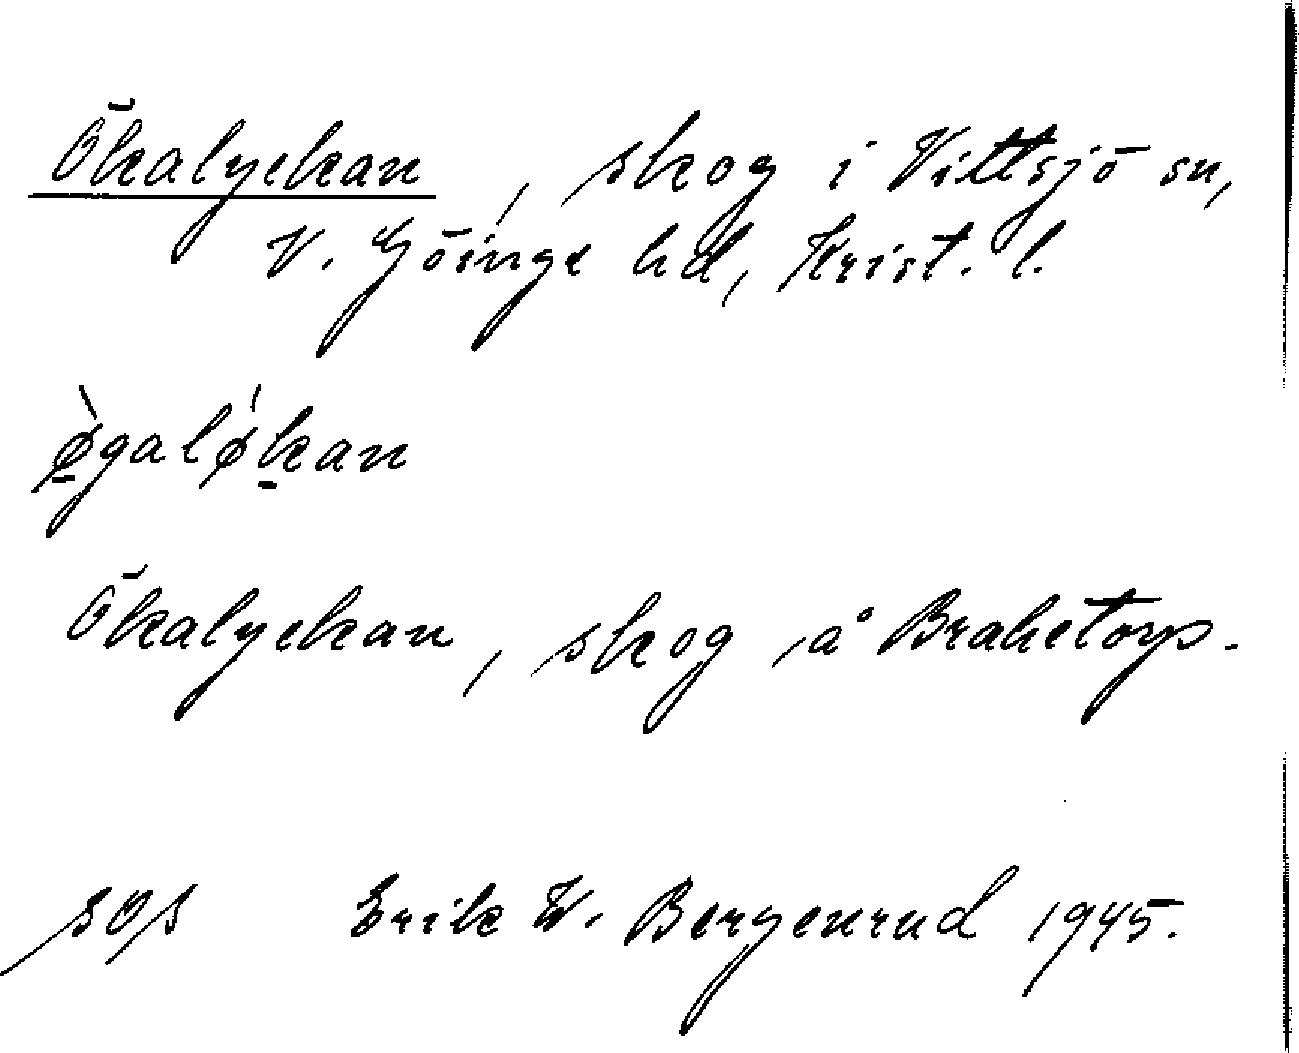 Ökalyckan, skog i Vittsjö sn,
V. Göinge hd, Krist. l.
ø̀galǿkan
Ökalyckan, skog å Brahetorp.
sOs Erik W. Bergenrud 1945.